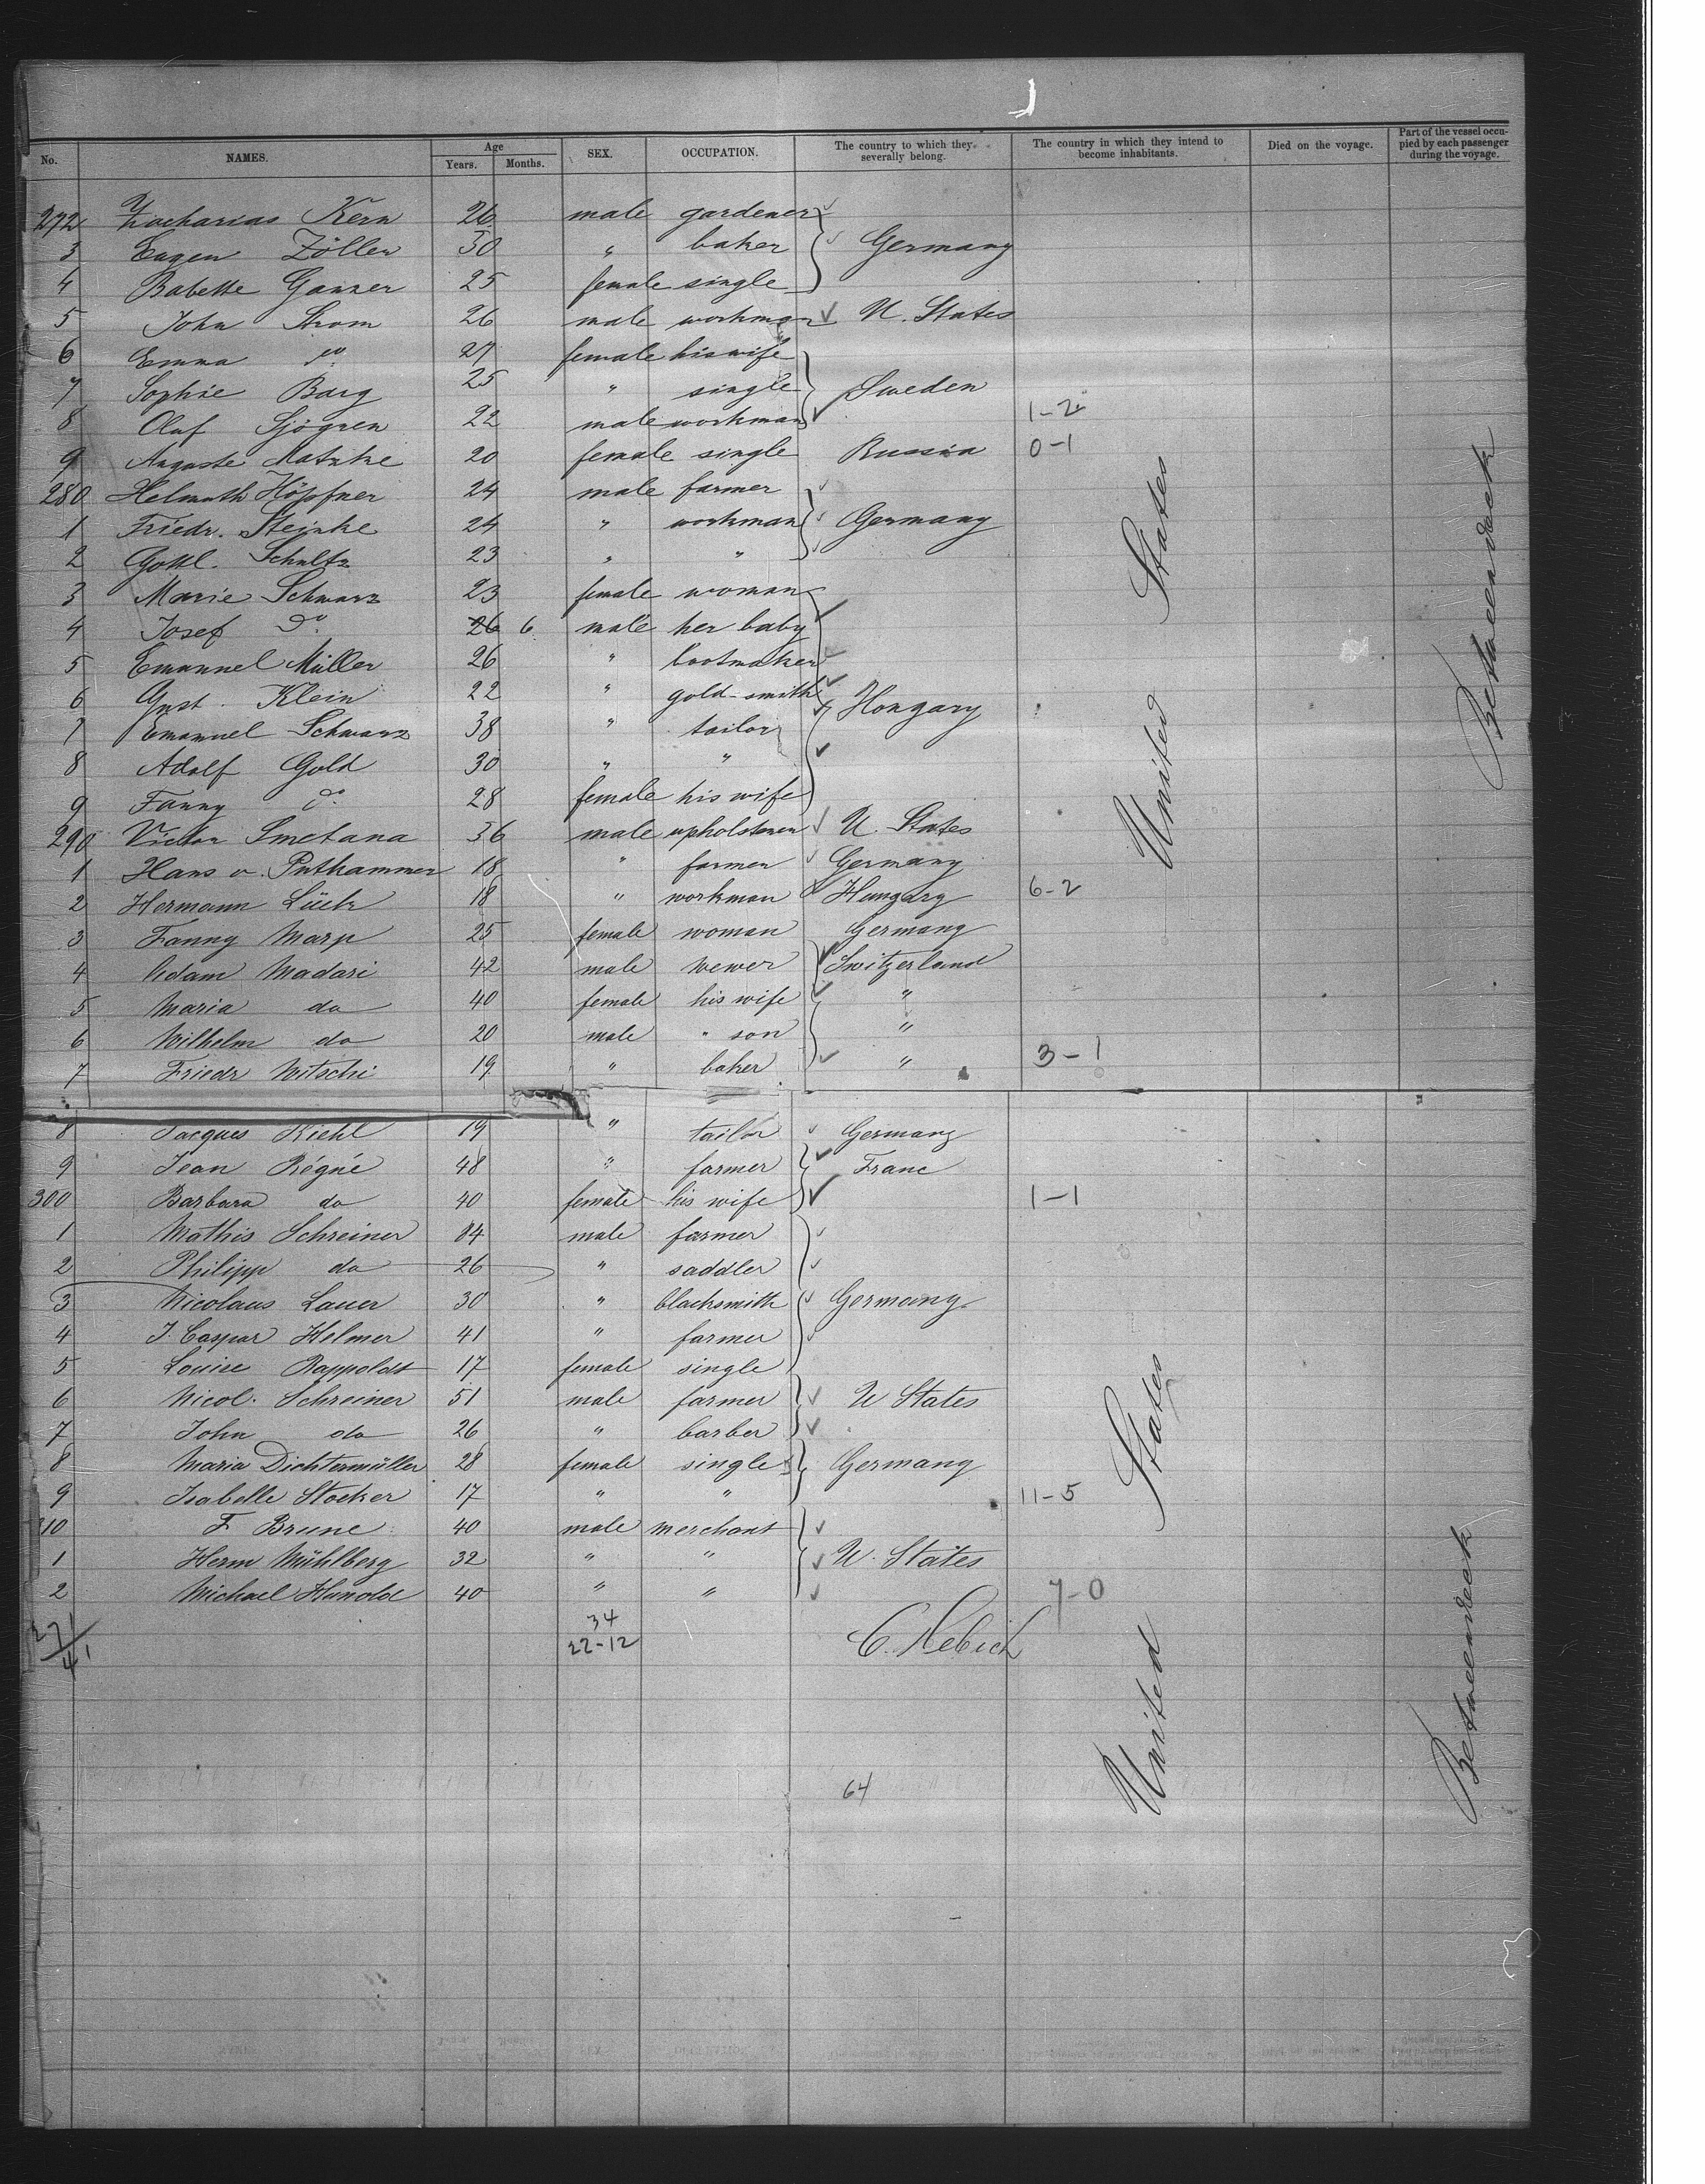 No. NAMES. Age Years. Months. SEX. OCCUPATION. The country to which they severally belong. The country in which they intend to become inhabitants. Died on the voyage. Part of the vessel occupied by each passenger during the voyage.
272 Zacharias Kern 26 male gardener
3 Eugen Zöller 30 " baker Germany
4 Babette Ganzer 25 female single
5 John Strom 26 male workman U. States
6 Emma do 27 female his wife
7 Sophie Barg 25 " single Sweden
8 Oluf Sjögren 22 male workman 1-2
9 Auguste Matzke 20 female single Russia 0-1
280 Helmuth Höpfner 24 male farmer
1 Friedr. Steinke 24 " workman Germany
2 Gottl. Schultz 23 " "
3 Marie Schwarz 23 female woman
4 Josef do 26 6 male her baby
5 Emanuel Müller 26 " bootmaker
6 Gust. Klein 22 " gold-smith Hongary
7 Emanuel Schwarz 38 " tailor
8 Adolf Gold 30 " "
9 Fanny do 28 female his wife
290 Victor Smetana 36 male upholsterer U. States
1 Hans v. Puthammer 18 " farmer Germany
2 Hermann Lück 18 " workman Hungary 6-2
3 Fanny Marp 25 female woman Germany
4 Adam Madari 42 male wewer Switzerland
5 Maria do 40 female his wife "
6 Wilhelm do 20 male " son "
7 Friedr Witschi 19 " baker " 3-1
8 Jacques Kiehl 19 " tailor Germany
9 Jean Régné 48 " farmer Franc
300 Barbara do 40 female his wife 1-1
1 Mathis Schreiner 84 male farmer
2 Philipp do 26 " saddler
3 Nicolaus Lauer 30 " blacksmith Germany
4 J. Caspar Helmer 41 " farmer
5 Louise Rappoldt 17 female single
6 Nicol. Schreiner 51 male farmer U States
7 John do 26 " barber
8 Maria Dichtermüller 28 female single Germany
9 Isabelle Stocker 17 " " 11-5
310 F Brune 40 male merchant
1 Herm Mühlberg 32 " " U. States
2 Michael Hunold 40 " " 7-0
271
41
34
22-12
C. Hebich
64
United States
Betweendeck
United States
Betweendeck